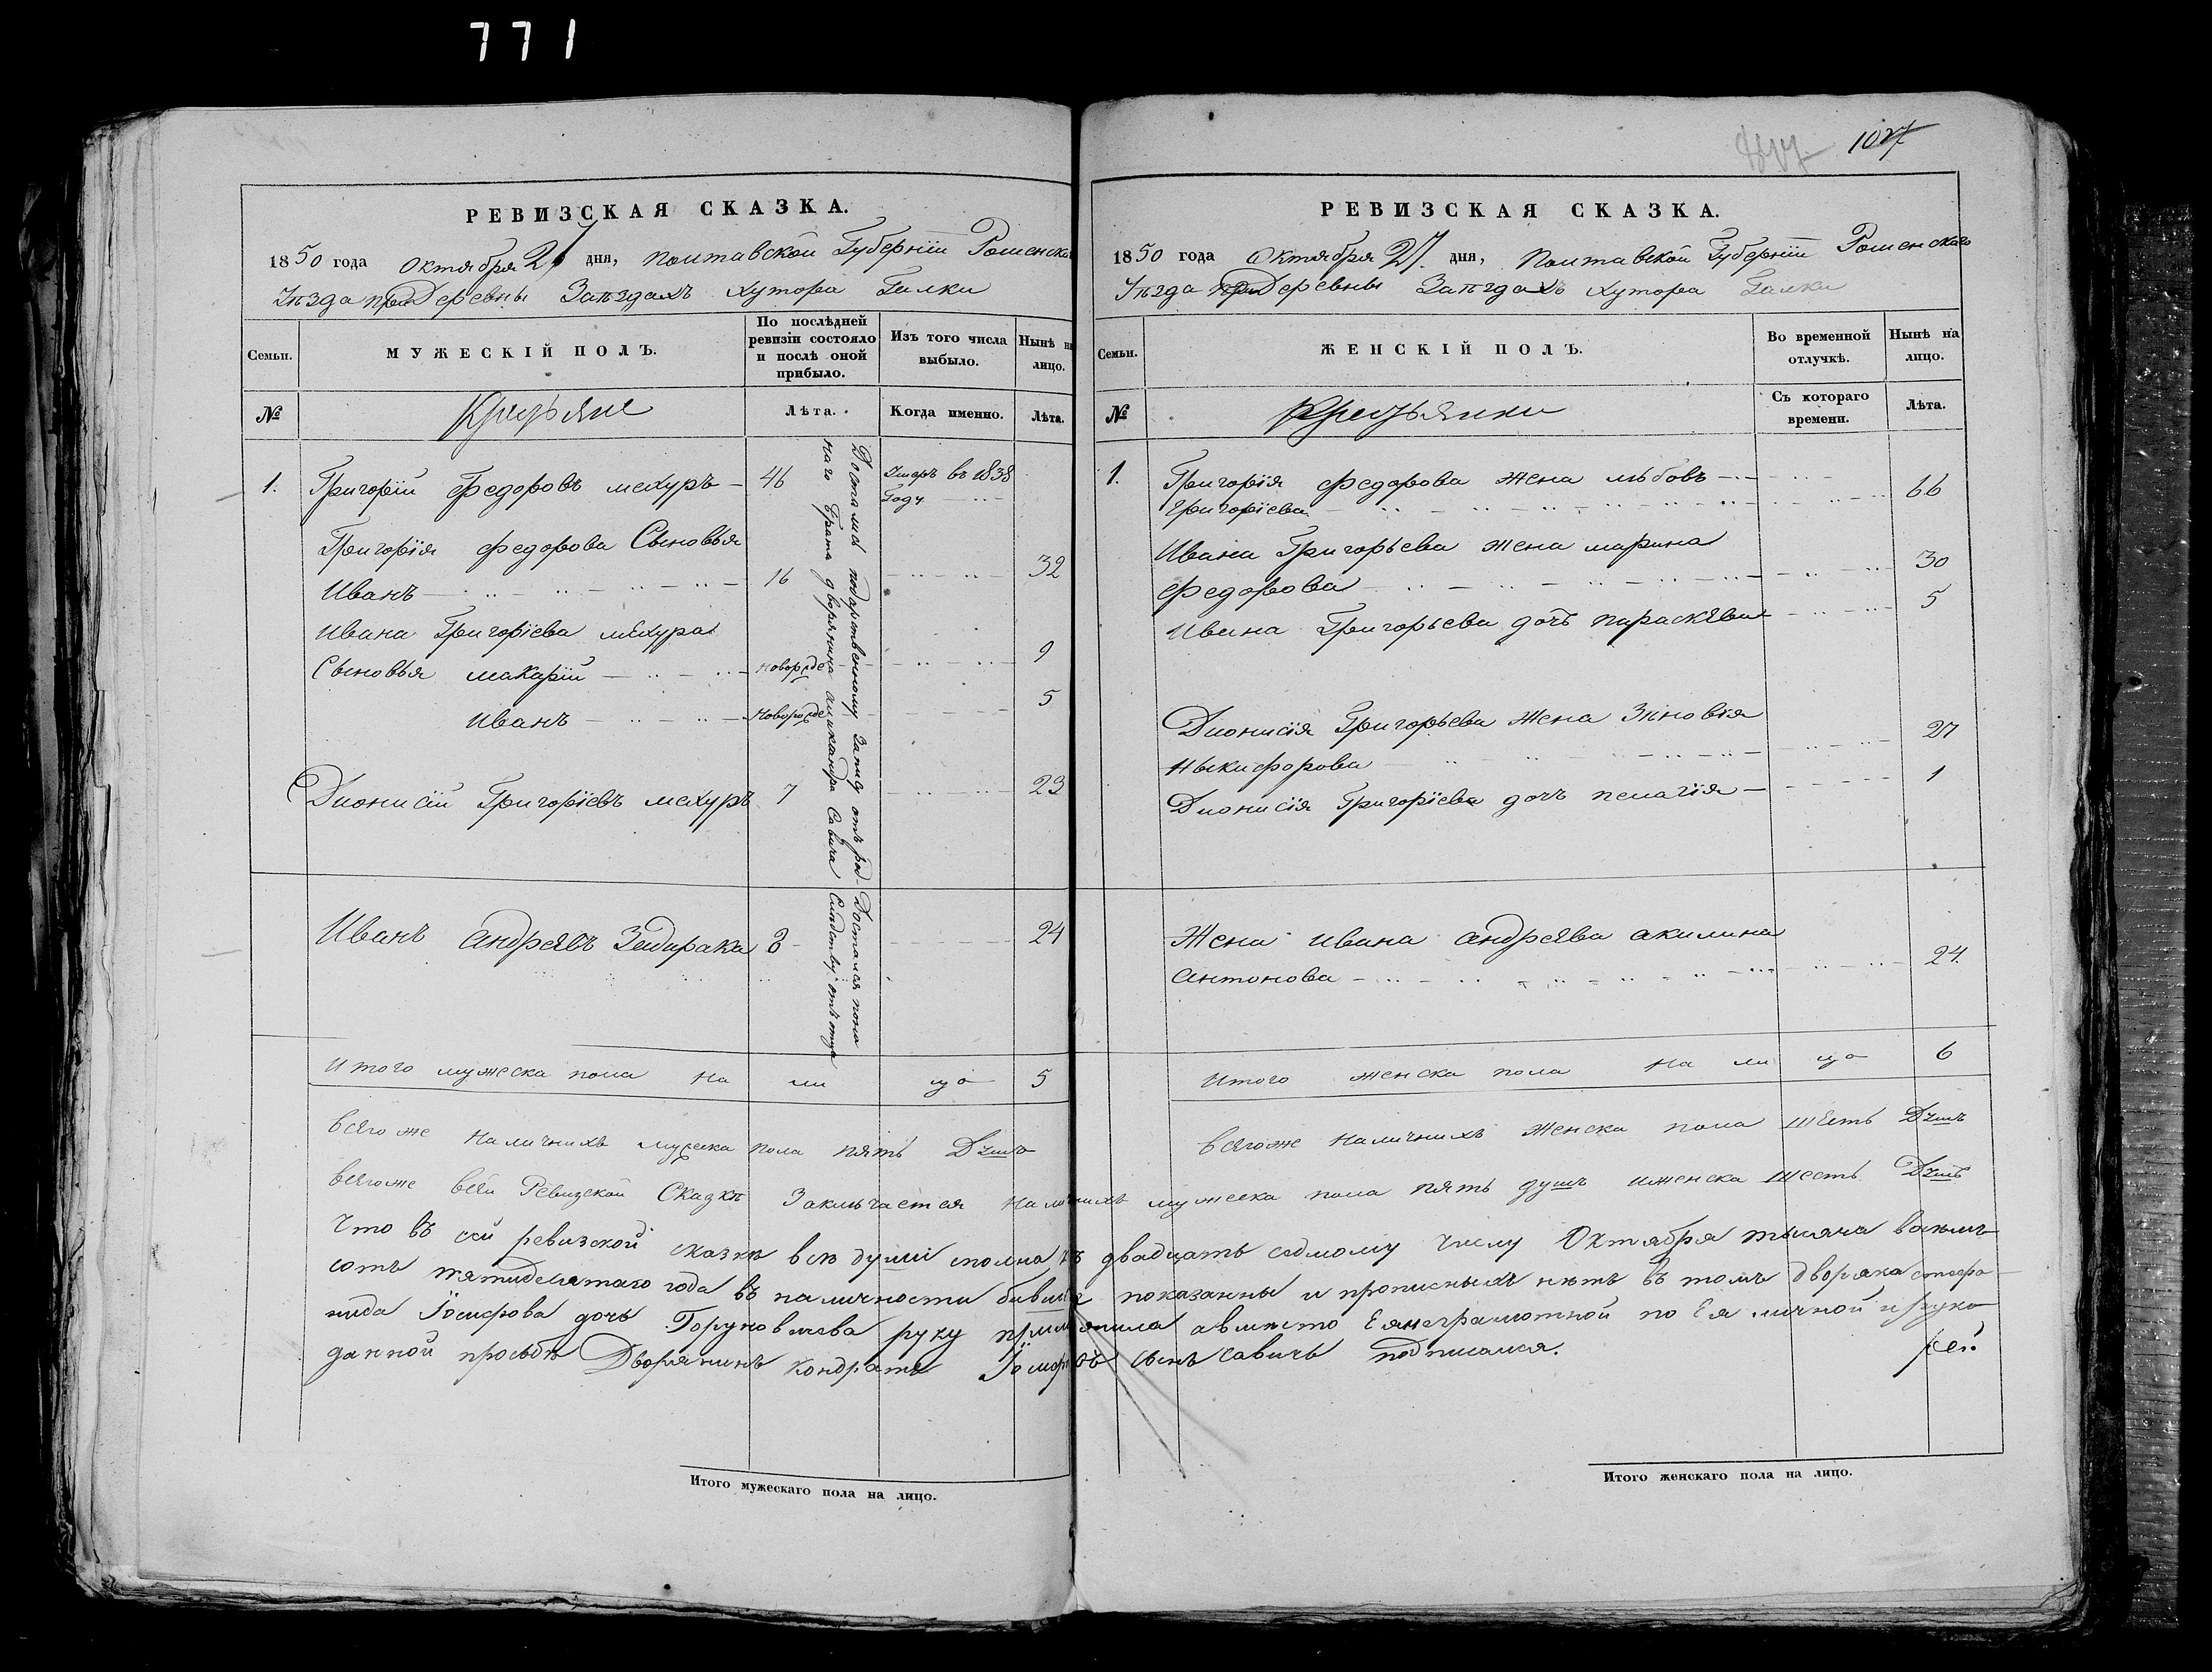 771
РЕВИЗСКАЯ СКАЗКА.
1850 года Октября 27 дня, Полтавской Губернїи Роменска
Уѣзда при Деревны Заѣздахъ хутора Галки
Семьи. МУЖЕСКІЙ ПОЛЪ. По послѣдней ревизіи состояло и послѣ оной прибыло. Изъ того числа выбыло. Нынѣ на лицо.
№ Крестьяне Лѣта. Когда именно. Лѣта.
1. Григорїй Федоровъ мехуръ 46 Умеръ въ 1838
Году
Григорїя федорова Сыновья
Иванъ 16 32
Ивана Григорїева мехура
Сыновья макарїй новорожде 9
Иванъ Новорожде 5
Дионисїй Григорїевъ мехуръ 7 23
Достались подарственному запису отъ род-
наго брата дворянина аликсандра Савича
Иванъ андреявъ Задирака 8 24
Достался пона
Слидству отъ отца
Итого мужеска пола на ли цо 5
всягоже наличнихъ мужеска пола пять Душъ
Итого мужескаго пола на лицо.
1027
РЕВИЗСКАЯ СКАЗКА.
1850 года Октября 27. дня, Полтавской Губернїи Роменскаго
Уѣзда при Деревны Заѣздахъ хутора Галки
Семьи. ЖЕНСКІЙ ПОЛЪ. Во временной отлучкѣ. Нынѣ на лицо.
№ Крестьянки Съ котораго времени. Лѣта.
1. Григорїя федорова жена любовь
Григорїева 66
Ивана Григорьева жена марина
федорова 30
Ивана Григорьева дочь параскѣва 5
Дионисїя Григорьева жена Зиновїя
Ныкифорова 27
Дионисїя Григорїева дочь пелагїя 1
Жена ивана андреява акилина
антонова 24.
Итого женска пола на ли цо 6
всягоже наличнихъ женска пола шесть Душъ
всягоже всей Ревизской Сказки Заключается наличнихъ мужеска пола пять душъ иженска шесть Душъ
Что въ сей ревизской сказкѣ всѣ души сполна къ двадцать седмому числу Октября тысяча восемь
сотъ пятидесятаго года въ наличности бывшїя показанны и прописныхъ нѣтъ въ томъ дворянка стефа
нида Їосифова дочь Горуновичева руку приложила авместо Еянеграмотной по Ея личной и руко
данной просьбѣ Дворянинъ кондратъ Їосифовъ сынъ савичъ подписался.
Итого женскаго пола на лицо.